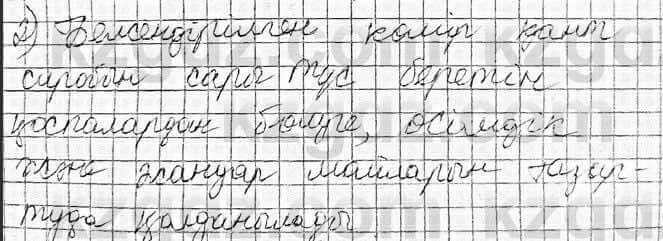 2) Белсендірілген көмір қант
сиробын сары түс беретін
қоспалардан бөлуге, өсімдік
және жануар майларын тазар-
туда қолданылады